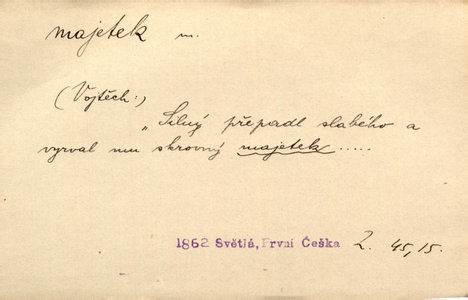 majetek m.
(Vojtěch:)
„Silný přepadl slabého a
vyrval mu skrovný majetek .....
1862 Světlá, První Češka 2. 45,15.